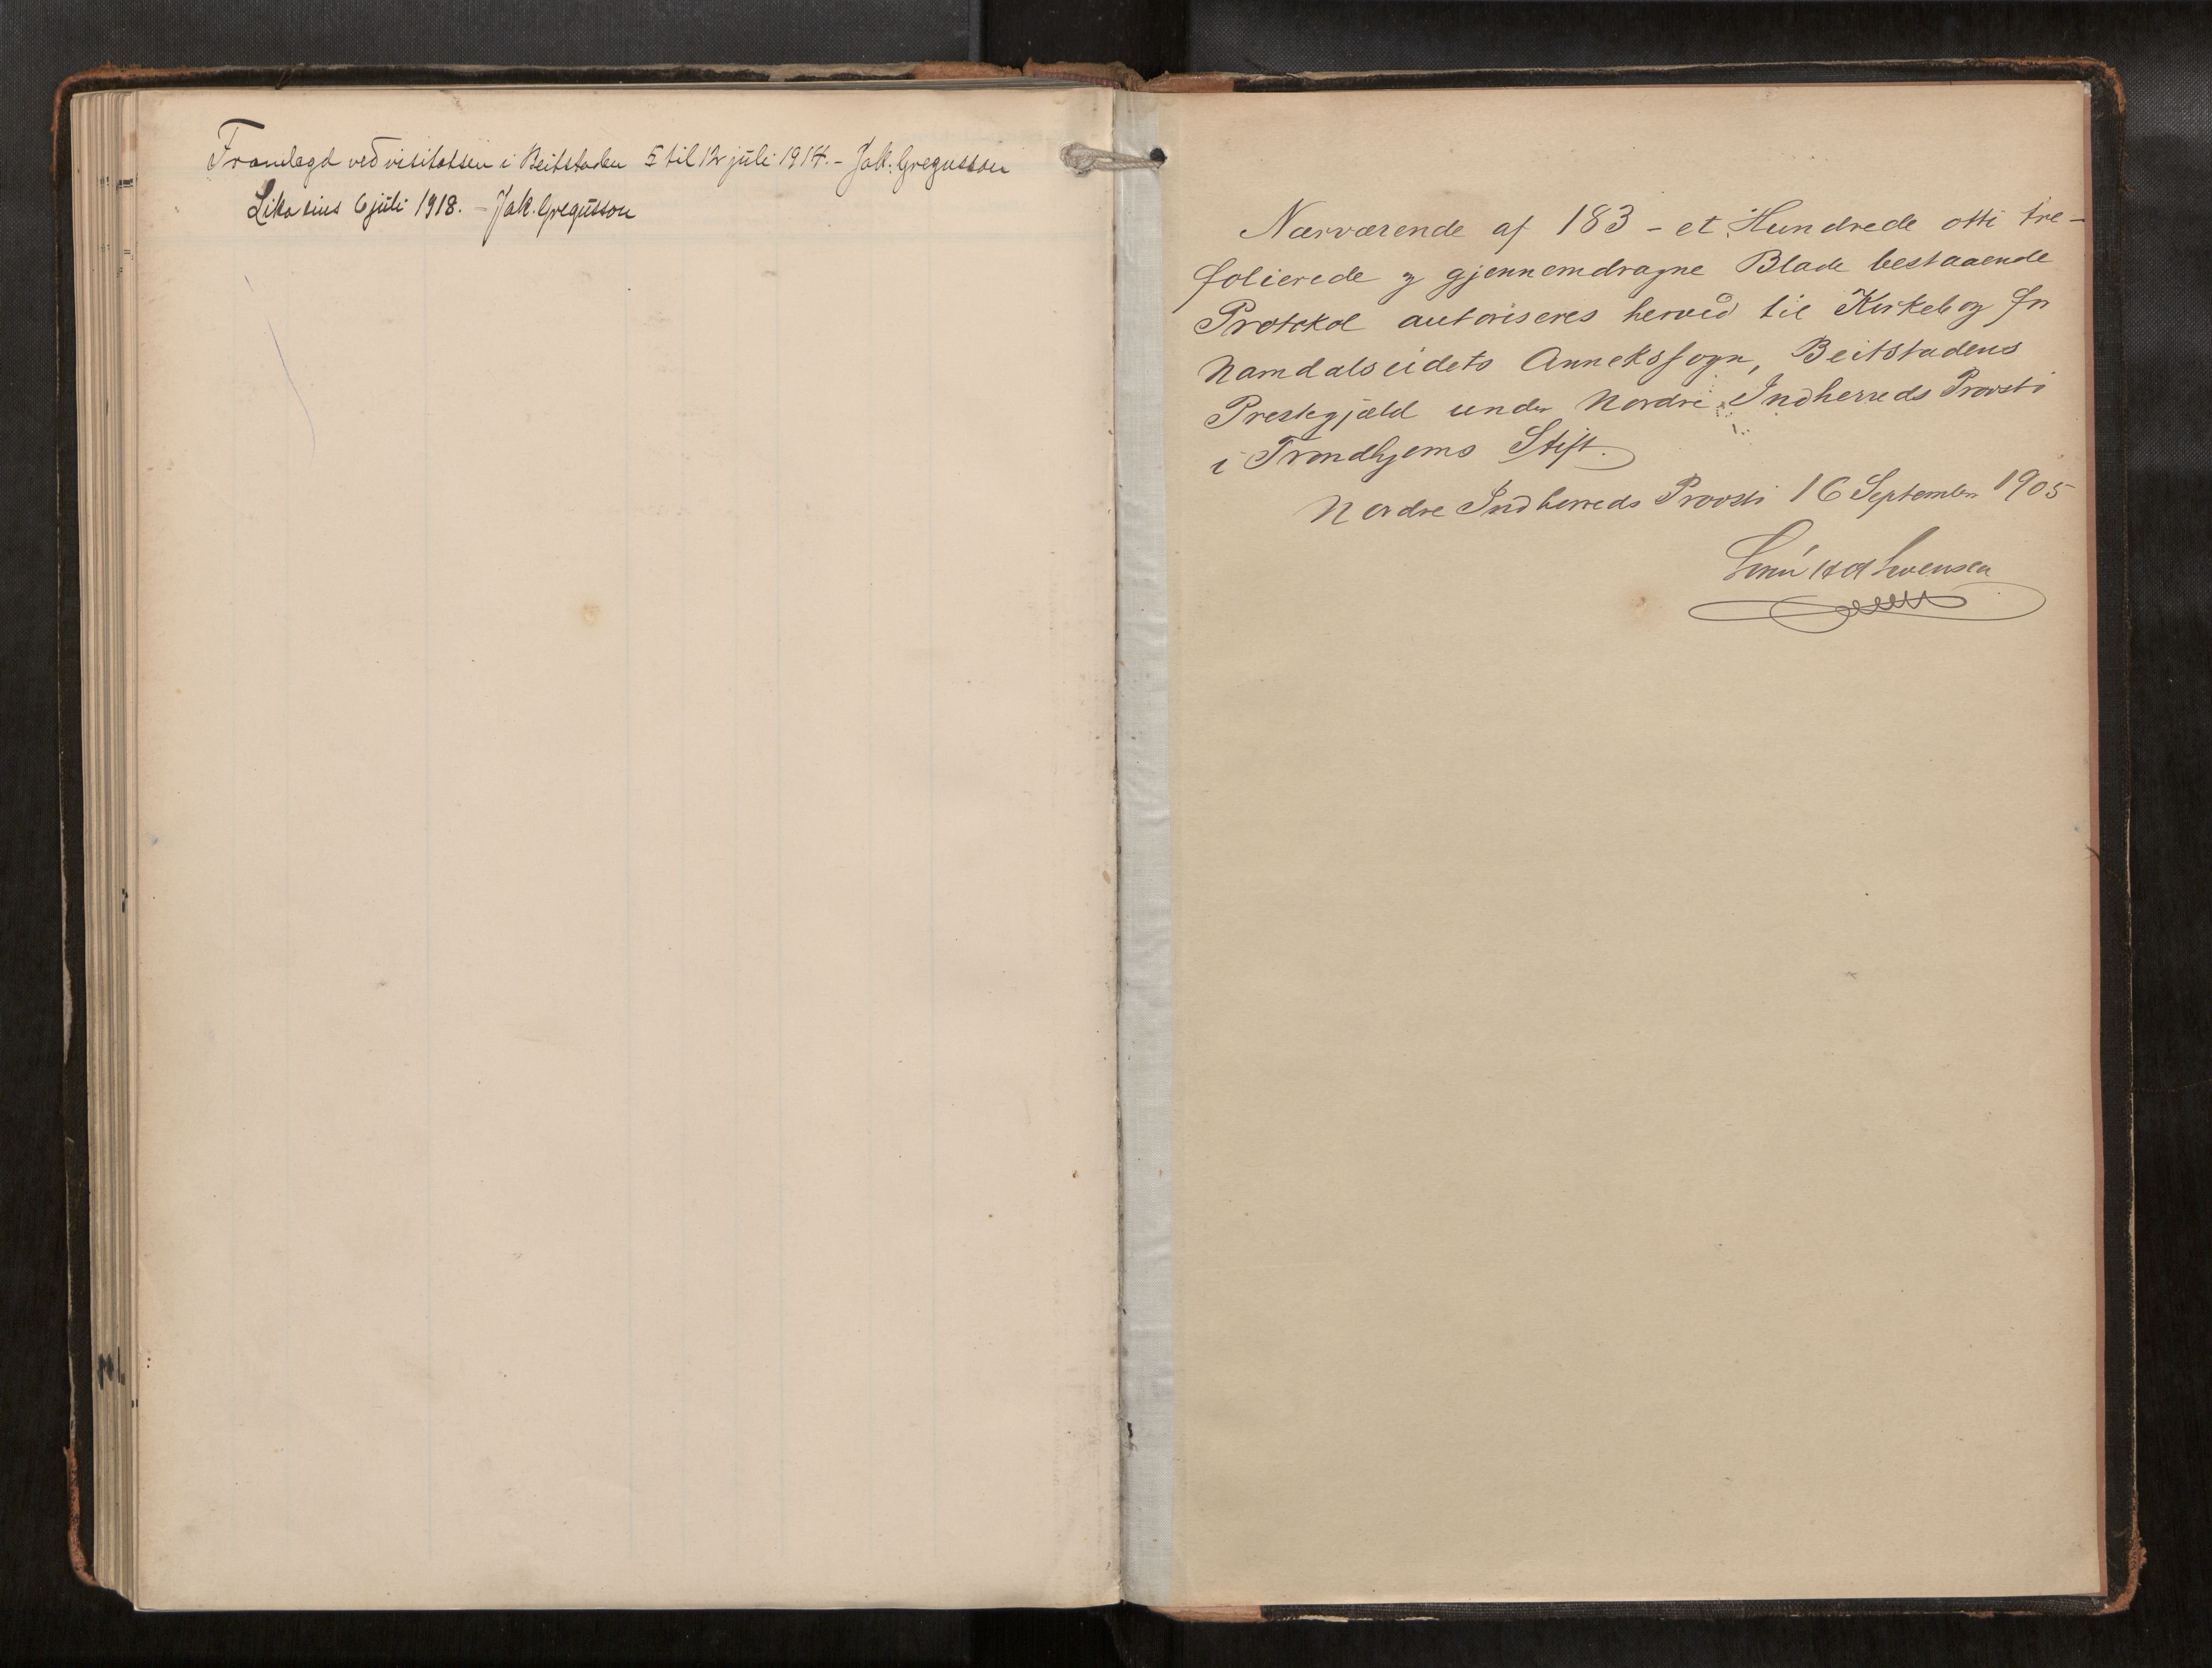 Framlegd ved visitatsen i Beitstaden 5 til 12 juli 1914. – Jak. Gregusson
Lika eins 6 juli 1918. – Jak. Gregusson
Nærværende af 183 – et Hundrede otti tre –
folierede og gjennemdragne Blade bestaaende
Protokol autoriseres herved til Kirkebog for
Namdalseidets Annekssogn, Beitstadens
Prestegjæld under Nordre Indherreds Provsti
i Trondhjems Stift.
Nordre Indherreds Provsti 16 September 1905